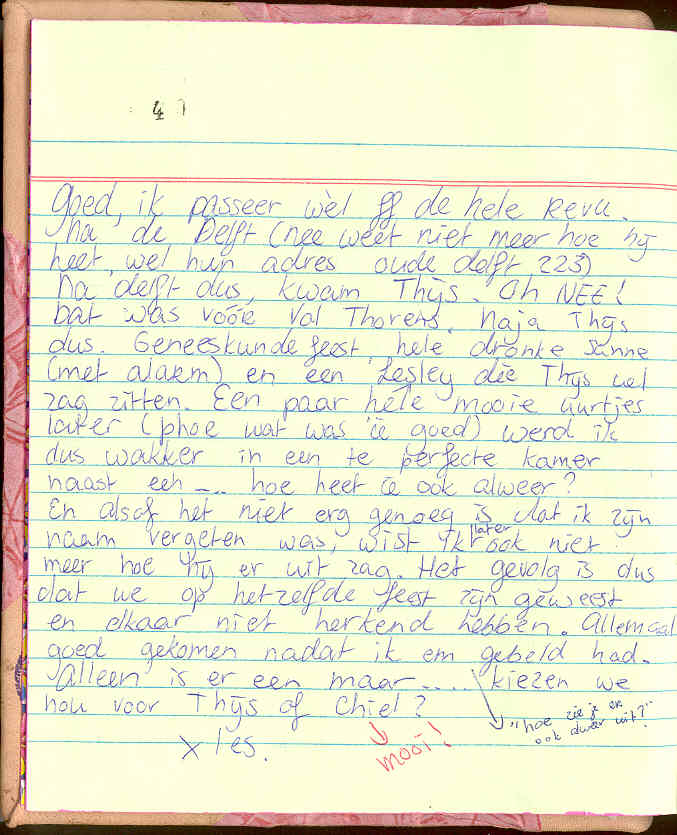 41
Goed, ik passeer wèl ff de hele Revu.
Na de Delft (nee weet niet meer hoe hij
heet, wel hun adres oude delft 223)
Na delft dus, kwam Thijs. Oh NEE!
Dat was vóór Val Thorens. Naja Thijs
dus. Geneeskundefeest, hele dronke Sanne
(met alarm) en een Lesley die Thijs wel
zag zitten. Een paar hele mooie uurtjes
later (phoe wat was ie goed) werd ik
dus wakker in een te perfecte kamer
naast een .... hoe heet ie ook alweer?
En alsof het niet erg genoeg is dat ik zijn
naam vergeten was, wist ik later ook niet
meer hoe hij er uit zag. Het gevolg is dus
dat we op hetzelfde feest zijn geweest
en elkaar niet herkend hebben. Allemaal
goed gekomen nadat ik em gebeld had.
Alleen is er een maar ..... kiezen we
nou voor Thijs of Chiel?
"hoe zie je er
ook alweer uit?"
x les.
mooi!